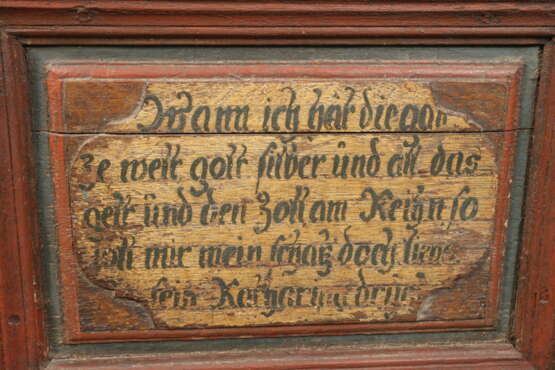 Wann ich hät die gan
ze welt golt silber und all das
gelt und den Zoll am Rein so
soll mir mein schatz doch lieber
sein